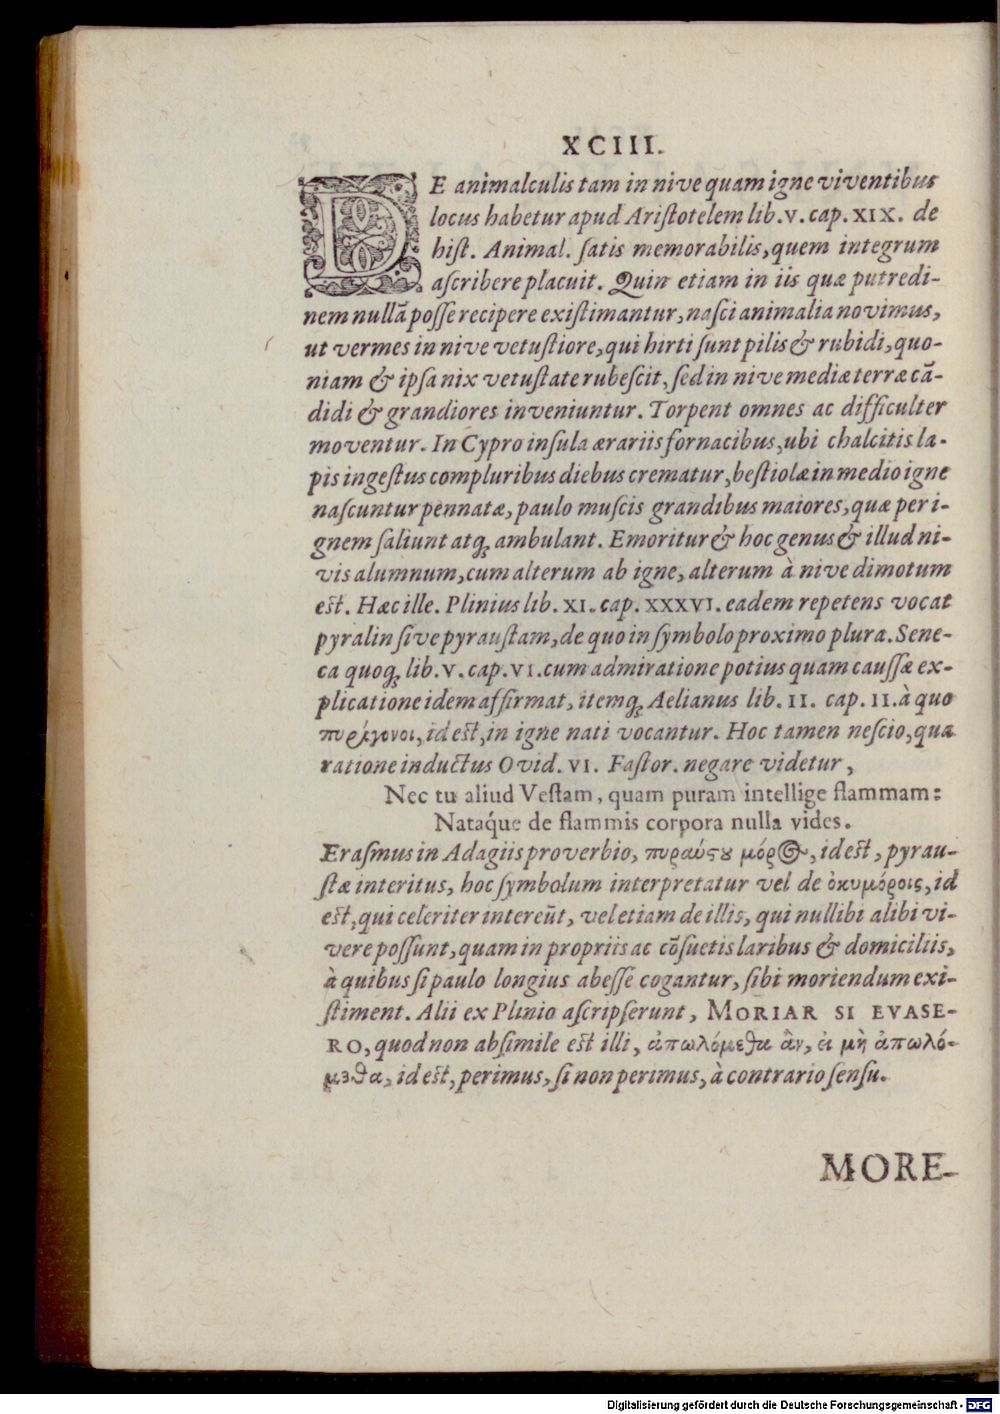 XCIII.
DE animalculis tam in nive quam igne viventibus
locus habetur apud Aristotelem lib. V. cap. XIX. de
hist. Animal. satis memorabilis, quem integrum
ascribere placuit. Quin etiam in iis quæ putredi-
nem nullā posse recipere existimantur, nasci animalia novimus,
ut vermes in nive vetustiore, qui hirti sunt pilis & rubidi, quo-
niam & ipsa nix vetustate rubescit, sed in nive mediæ terræ cā-
didi & grandiores inveniuntur. Torpent omnes ac difficulter
moventur. In Cypro insula ærariis fornacibus, ubi chalcitis la-
pis ingestus compluribus diebus crematur, bestiolæ in medio igne
nascuntur pennatæ, paulo muscis grandibus maiores, quæ per i-
gnem saliunt atq; ambulant. Emoritur & hoc genus & illud ni-
vis alumnum, cum alterum ab igne, alterum à nive dimotum
est. Hæc ille. Plinius lib. XI. cap. XXXVI. eadem repetens vocat
pyralin sive pyraustam, de quo in symbolo proximo plura. Sene-
ca quoq; lib. V. cap. VI. cum admiratione potius quam caussæ ex-
plicatione idem affirmat, itemq; Aelianus lib. II. cap. II. à quo
πυρίγονοι, id est, in igne nati vocantur. Hoc tamen nescio, qua
ratione inductus Ovid. VI. Fastor. negare videtur,
Nec tu aliud Vestam, quam puram intellige flammam:
Natáque de flammis corpora nulla vides.
Erasmus in Adagiis proverbio, πυραύστου μόρος, id est, pyrau-
stæ interitus, hoc symbolum interpretatur vel de ὀκυμόροις, id
est, qui celeriter intereūt, vel etiam de illis, qui nullibi alibi vi-
vere possunt, quam in propriis ac cōsuetis laribus & domiciliis,
à quibus si paulo longius abesse cogantur, sibi moriendum exi-
stiment. Alii ex Plinio ascripserunt, MORIAR SI EVASE-
RO, quod non absimile est illi, ἀπωλόμεθα ἂν, εἰ μὴ ἀπωλό-
μεθα, id est, perimus, si non perimus, à contrario sensu.
MORE-
Digitalisierung gefördert durch die Deutsche Forschungsgemeinschaft - DFG